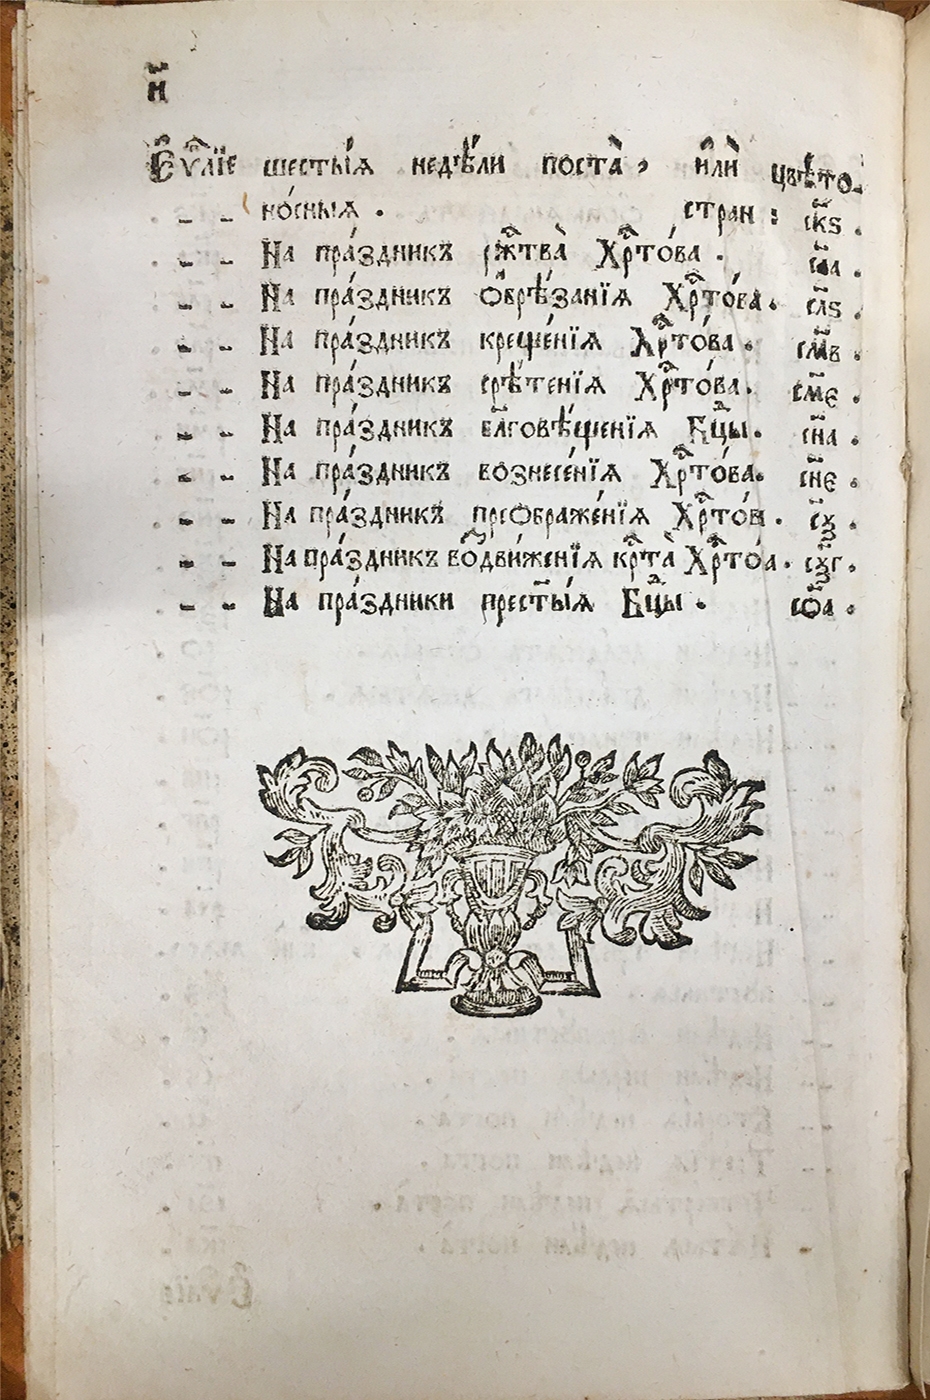 и҃
Є҆ѵⷢ҇лїе шесты́ѧ недѣ́ли поста̀, и҆лѝ цвѣ́то-
- - но́сныѧ. стран: ск҃ѕ.
- - На пра́здникъ рж҃тва̀ Хрⷭ҇то́ва. с҃ла.
- - На пра́здникъ ѡ҆брѣ́занїѧ Хрⷭ҇то́ва. сл҃ѕ.
- - На пра́здникъ креще́нїѧ Хрⷭ҇то́ва. см҃в.
- - На пра́здникъ срѣ́тенїѧ Хрⷭ҇то́ва. см҃є.
- - На пра́здникъ бл҃говѣ́щенїѧ Бцⷣы. сн҃а.
- - На пра́здникъ вознесе́нїѧ Хрⷭ҇то́ва. сн҃є.
- - На пра́здникъ преѡбраже́нїѧ Хрⷭ҇то́в. с҃ѯ.
- - На пра́здникъ воⷥдви́женїѧ крⷭ҇та̀ Хрⷭ҇то́а. сѯ҃г.
- - На пра́здники прест҃ы́ѧ Бцⷣы. со҃а.